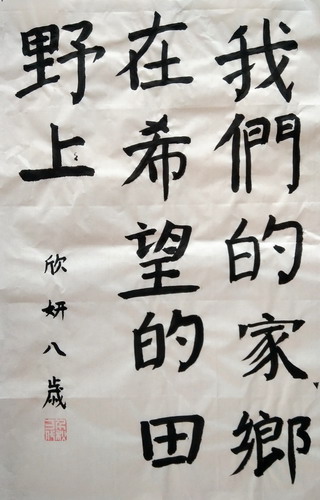 我們的家鄉
在希望的田
野上
欣妍八歲